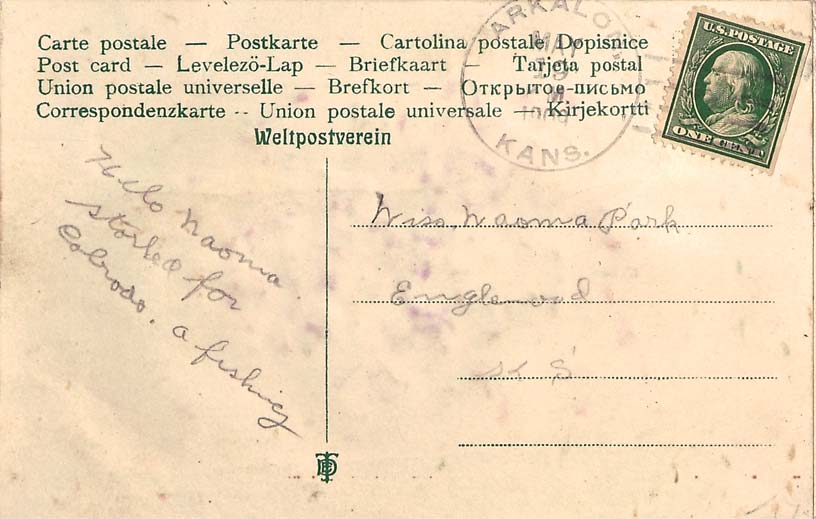 Carte postale — Postkarte — Cartolina postale Dopisnice
Post card — Levelező-Lap — Briefkaart — Tarjeta postal
Union postale universelle — Brefkort — Открытое-письмо
Correspondenzkarte -- Union postale universale — Kirjekortti
Weltpostverein
ARKALON
KANS.
U.S. POSTAGE
ONE CENT
Hello Naoma
started for
Colorado. a fishing
Miss Naoma Park
Englewood
KS